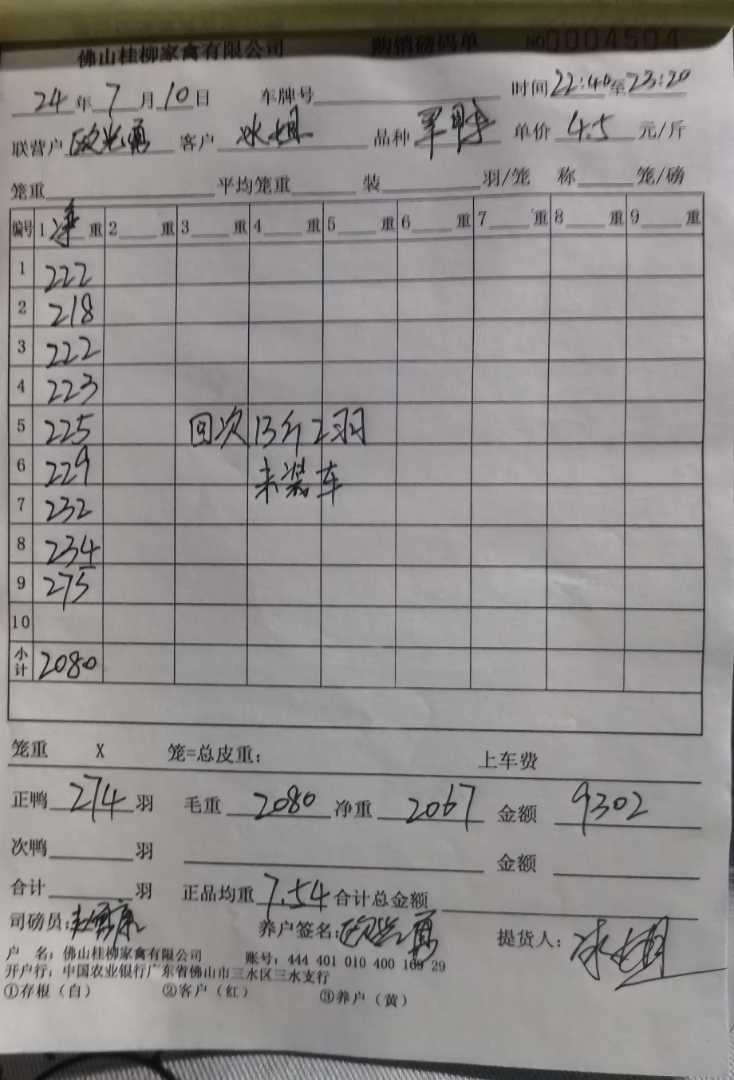 佛山桂柳家禽有限公司 购销磅码单 NO0004504
24年7月10日 车牌号 时间22:40至23:20
联营户 客户 冰姐 品种 单价 4.5 元/斤
笼重 平均笼重 装 羽/笼 称 笼/磅
编号 1净重 2 重 3 重 4 重 5 重 6 重 7 重 8 重 9 重
1 222
2 218
3 222
4 223
5 225 回次13斤2羽
6 229 未装车
7 232
8 234
9 275
10
小计 2080
笼重 X 笼=总皮重: 上车费
正鸭 274 羽 毛重 2080 净重 2067 金额 9302
次鸭 羽 金额
合计 羽 正品均重 7.54 合计总金额
司磅员: 养户签名: 提货人: 冰姐
户 名: 佛山桂柳家禽有限公司 账号: 444 401 010 400 169 29
开户行: 中国农业银行广东省佛山市三水区三水支行
①存根(白) ②客户(红) ③养户(黄)